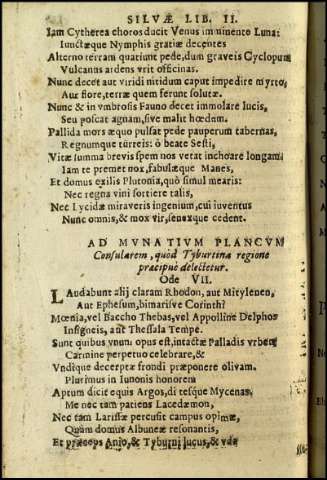 SILVÆ LIB. II.
Iam Cytherea choros ducit Venus imminente Luna:
Iunctæque Nymphis gratiæ decentes
Alterno terram quatiunt pede, dum graveis Cyclopum
Vulcanus ardens vrit officinas.
Nunc decet aut viridi nitidum caput impedire myrto,
Aut flore, terræ quem ferunt solutæ.
Nunc & in vmbrosis Fauno decet immolare lucis,
Seu poscat agnam, sive malit hœdum.
Pallida mors æquo pulsat pede pauperum tabernas,
Regnumque turreis: ô beate Sesti,
Vitæ summa brevis spem nos vetat inchoare longam
Iam te premet nox, fabulæque Manes,
Et domus exilis Plutonia, quô simul mearis:
Nec regna vini sortiere talis,
Nec Lycidã miraveris ingenium, cui iuventus
Nunc omnis, & mox vir, senexque cedent.
AD MVNATIVM PLANCVM
Consularem, quòd Tyburtina regione
præcipuè delectetur.
Ode VII.
LAudabunt alij claram Rhodon, aut Mitylenen,
Aut Ephesum, bimarisve Corinthi
Mœnia, vel Baccho Thebas, vel Appolline Delphos
Insigneis, aut Thessala Tempe.
Sunt quibus vnum opus est, intactæ Palladis vrbem
Carmine perpetuo celebrare, &
Vndique decerptæ frondi præponere olivam.
Plurimus in Iunonis honorem
Aptum dicit equis Argos, ditesque Mycenas.
Me nec tam patiens Lacedæmon,
Nec tam Larissæ percusit campus opimæ,
Quàm domus Albuneæ resonantis,
Et præceps Anio, & Tyburni lucus, & vda